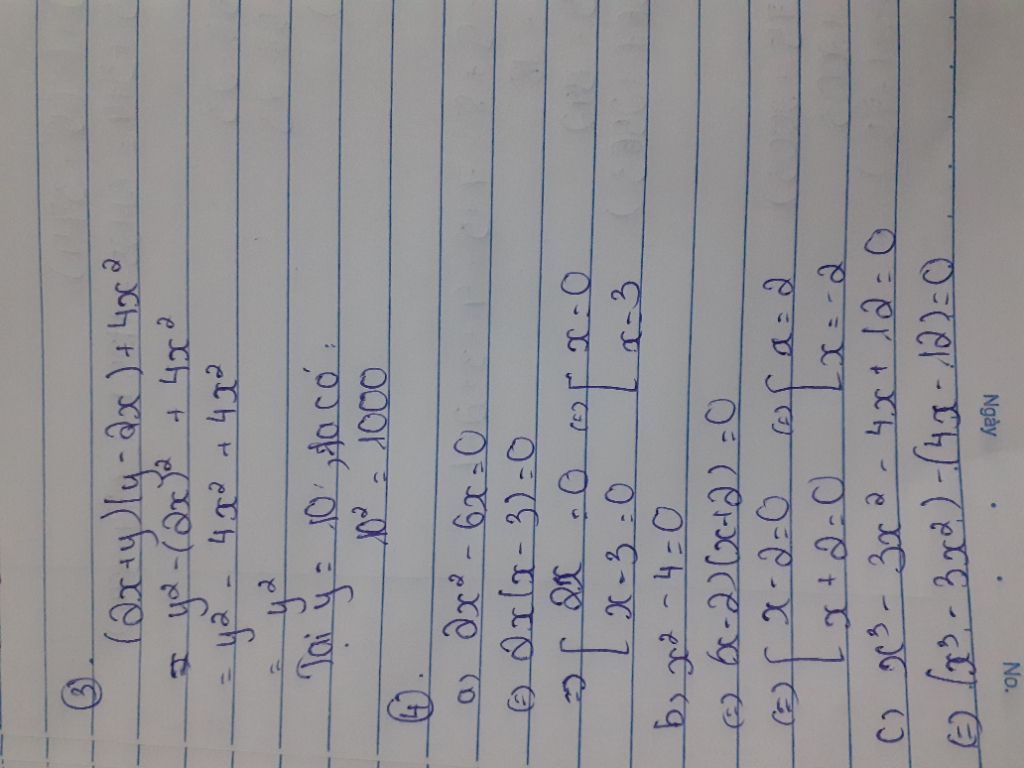 ③.
(2x+y)(y-2x)+4x²
= y²-(2x)² + 4x²
= y² - 4x² + 4x²
= y²
Tại y = 10, ta có:
10² = 1000
④.
a) 2x² - 6x = 0
(=) 2x(x-3) = 0
=) [ 2x = 0 (=) [ x = 0
[ x-3 = 0 [ x = 3
b) x² - 4 = 0
(=) (x-2)(x+2) = 0
(=) [ x-2 = 0 (=) [ x = 2
[ x+2 = 0 [ x = -2
c) x³ - 3x² - 4x + 12 = 0
(=) (x³ - 3x²) - (4x - 12) = 0
No. Ngày